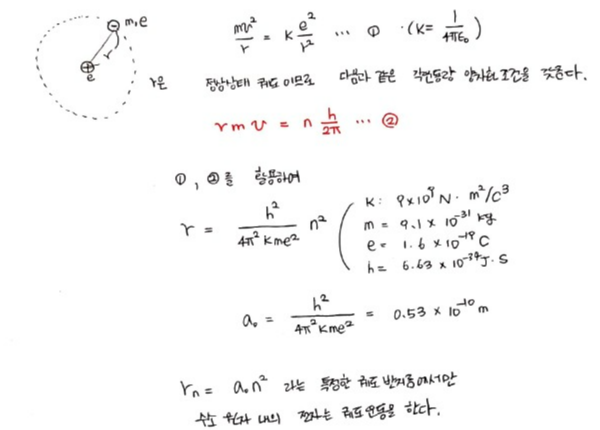 ⊖ m,e
r
⊕
e
mv²/r = k e²/r² ··· ① ·(K= 1/4πε₀)
r은 정상상태 궤도이므로 다음과 같은 각운동량 양자화 조건을 갖는다.
r m v = n h/2π ··· ②
①, ②를 활용하여
r = h²/4π²Kme² n²
K: 9×10⁹ N·m²/C³
m = 9.1 × 10⁻³¹ kg
e = 1.6 × 10⁻¹⁹ C
h = 6.63 × 10⁻³⁴ J·S
a₀ = h²/4π²Kme² = 0.53 × 10⁻¹⁰ m
rₙ = a₀n² 라는 특정한 궤도 반지름에서만
수소 원자 내의 전자는 궤도운동을 한다.